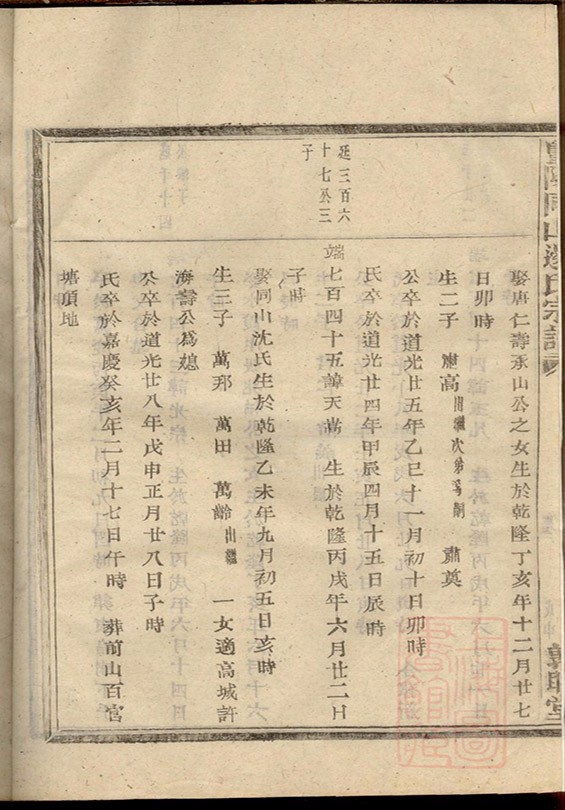 娶唐仁壽承山公之女生於乾隆丁亥年十二月廿七
日卯時
生二子 肅高出繼次弟為嗣 肅奠
公卒於道光廿五年乙巳十一月初十日卯時
氏卒於道光廿四年甲辰四月十五日辰時
廷三百六
十七公三
子
端七百四十五諱天 生於乾隆丙戌年六月廿二日
子時
娶同山沈氏生於乾隆乙未年九月初五日亥時
生三子 萬邦 萬田 萬齡出繼 一女適高城許
海壽公為媳
公卒於道光廿八年戊申正月廿八日子時
氏卒於嘉慶癸亥年二月十七日午時 葬前山百宮
塘項地